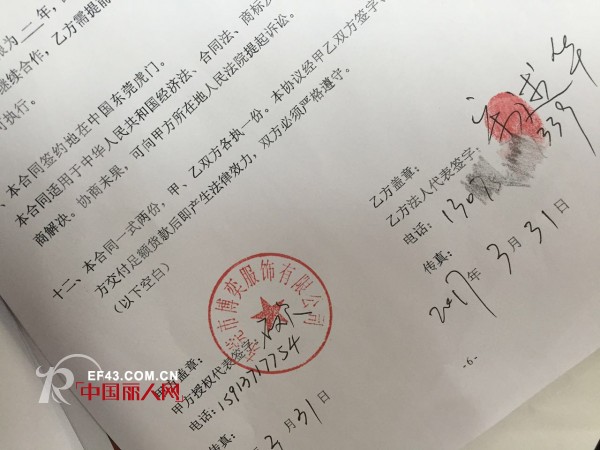 限为 二 年,
继续合作,乙方需提前
可执行。
、本合同签约地在中国东莞虎门。
本合同适用于中华人民共和国经济法、合同法、商标法
商解决。协商未果,可向甲方所在地人民法院提起诉讼。
十二、本合同一式两份,甲、乙双方各执一份。本协议经甲乙双方签字
方交付足额货款后即产生法律效力,双方必须严格遵守。
(以下空白)
乙方盖章:
乙方法人代表签字:
电话:130
339
传真:
2017年 3月 31日
东莞市博奕服饰有限公司
甲方盖章:
甲方授权代表签字:
电话:15913717754
传真:
3月 31日
-6-
EF43.COM.CN
中国丽人网